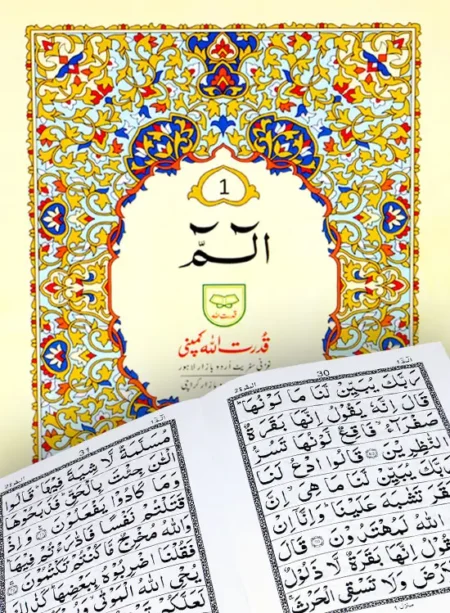 1
الٓمّٓ
قدرت اللہ
قُدرت اللہ کمپنی
غزنی سٹریٹ اردو بازار لاہور
بازار کراچی
30
رَبَّكَ يُبَيِّنْ لَّنَا مَا لَوْنُهَا ؕ
قَالَ اِنَّهٗ يَقُوْلُ اِنَّهَا بَقَرَةٌ
صَفْرَآءُ ۙ فَاقِعٌ لَّوْنُهَا تَسُرُّ
النّٰظِرِيْنَ ۝ قَالُوا ادْعُ لَنَا
رَبَّكَ يُبَيِّنْ لَّنَا مَا هِيَ ۙ اِنَّ
بَقَرَ تَشٰبَهَ عَلَيْنَا ؕ وَاِنَّاۤ اِنْ
اللّٰهُ لَمُهْتَدُوْنَ ۝ قَالَ
يَقُوْلُ اِنَّهَا بَقَرَةٌ لَّا ذَلُوْلٌ
رْضَ وَلَا تَسْقِى الْحَرْثَ ۚ
31
مُسَلَّمَةٌ لَّا شِيَةَ فِيْهَا ؕ قَالُوا
الْـٰٔنَ جِئْتَ بِالْحَقِّ ؕ فَذَبَحُوْهَا
وَمَا كَادُوْا يَفْعَلُوْنَ ۝ وَاِذْ
قَتَلْتُمْ نَفْسًا فَادّٰرَءْتُمْ فِيْهَا ؕ
وَاللّٰهُ مُخْرِجٌ مَّا كُنْتُمْ تَكْتُمُوْنَ ۝
فَقُلْنَا اضْرِبُوْهُ بِبَعْضِهَا ؕ كَذٰلِكَ
يُحْىِ اللّٰهُ الْمَوْتٰى ۙ وَيُرِ
لَعَلَّكُمْ